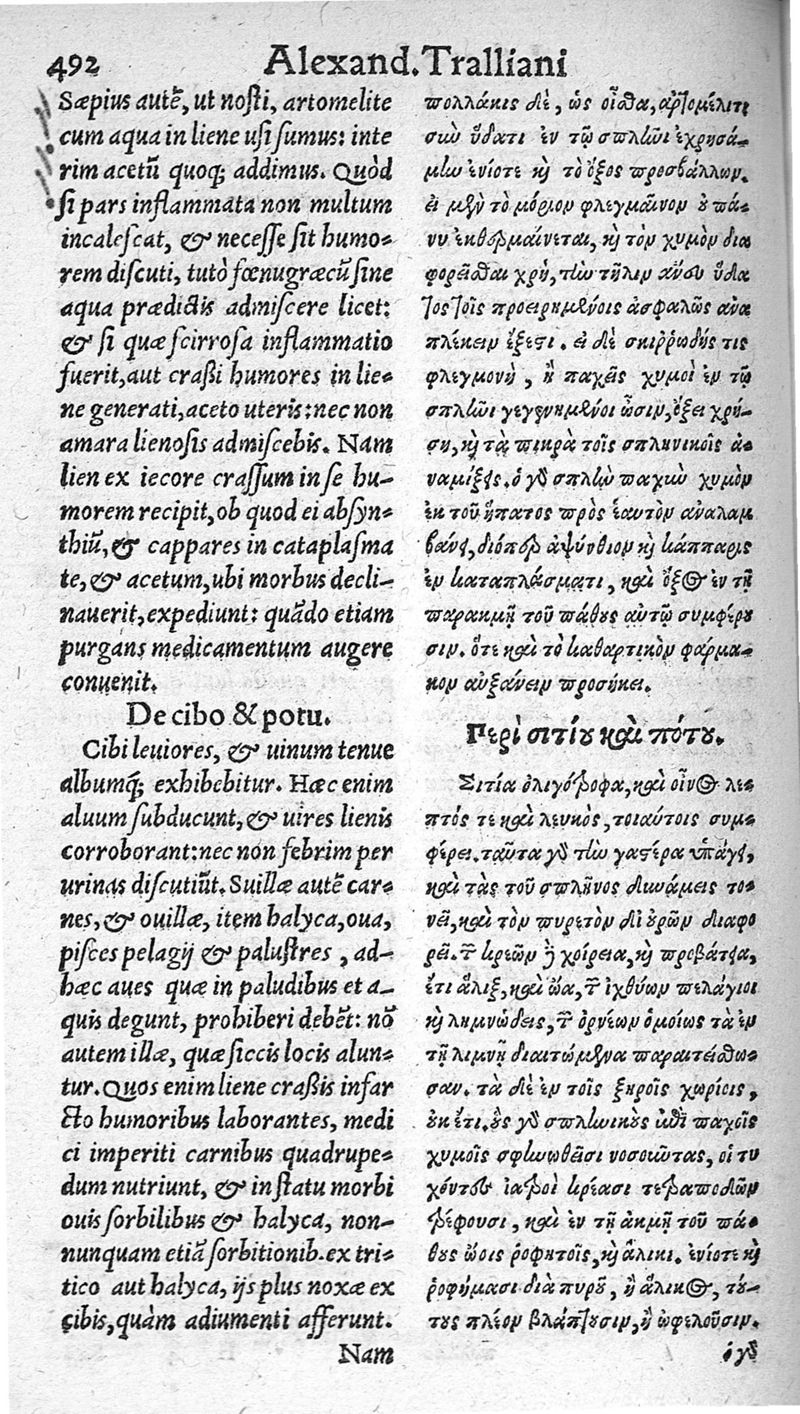 492
Alexand. Tralliani
Sæpius autē, ut nosti, artomelite
cum aqua in liene usi sumus: inte
rim acetū quoq; addimus. Quòd
si pars inflammata non multum
incalescat, & necesse sit humo=
rem discuti, tutò fœnugræcū sine
aqua prædictis admiscere licet:
& si quæ scirrosa inflammatio
fuerit, aut crassi humores in lie=
ne generati, aceto uteris: nec non
amara lienosis admiscebis. Nam
lien ex iecore crassum in se hu-
morem recipit, ob quod ei absyn=
thiū, & cappares in cataplasma
te, & acetum, ubi morbus decli-
nauerit, expediunt: quādo etiam
purgans medicamentum augere
conuenit.
De cibo & potu.
Cibi leuiores, & uinum tenue
albumq́; exhibebitur. Hæc enim
aluum subducunt, & uires lienis
corroborant: nec non febrim per
urinas discutiūt. Suillæ autē car=
nes, & ouillæ, item halyca, oua,
pisces pelagij & palustres, ad-
hæc aues quæ in paludibus et a-
quis degunt, prohiberi debēt: nō
autem illæ, quæ siccis locis alun=
tur. Quos enim liene crassis infar
cto humoribus laborantes, medi
ci imperiti carnibus quadrupe=
dum nutriunt, & in statu morbi
ouis sorbilibus & halyca, non-
nunquam etiā sorbitionib. ex tri=
tico aut halyca, ijs plus noxæ ex
cibis, quàm adiumenti afferunt.
Nam
πολλάκις δὲ, ὡς οἶσθα, ἀρτομέλιτι
σὺν ὕδατι ἐν τῷ σπλωὶ ἐχρησά=
μlω ἐνίοτε κὶ τὸ ὄξος προσβάλλων.
εἰ μὲν τὸ μόριον φλεγμαῖνον ȣ πά=
νυ ἐκθερμαίνεται, κὶ τὸν χυμὸν δια
φορεῖσθαι χρὴ, τlὼ τῆλιν ἄνευ ὕδα
τος τοῖς προειρημένοις ἀσφαλῶς ἀνα
πλέκειν ἔξεστι. εἰ δὲ σκιῤῥώδης τις
φλεγμονὴ, ἢ παχεῖς χυμοὶ ἐν τῷ
σπλlωὶ γεγενημένοι ὦσιν, ὄξει χρή=
σῃ, κὶ τὰ πικρὰ τοῖς σπληνικοῖς ἀ=
ναμίξεις. ὁ γδ σπλlὼ παχιὼ χυμὸν
ἐκ τοῦ ἥπατος πρὸς ἑαυτὸν ἀναλαμ
βάνει, διόπερ ἀψίνθιον κὶ κάππαρις
ἐν καταπλάσματι, καὶ ὄξος ἐν τῇ
παρακμῇ τοῦ πάθους αὐτῷ συμφέρȣ
σιν. ὅτε καὶ τὸ καθαρτικὸν φάρμα=
κον αὐξάνειν προσήκει.
Περὶ σιτίȣ καὶ πότȣ.
Σιτία ὀλιγότροφα, καὶ οἶνος λε=
πτός τε καὶ λευκὸς, τοιαύτοις συμ=
φέρει. ταῦτα γδ τlὼ γαστέρα ὑπάγει,
καὶ τὰς τοῦ σπλῆνος δυνάμεις το=
νεῖ, καὶ τὸν πυρετὸν δι' ȣρῶν διαφο
ρεῖ. τ̃ κρεῶν ἢ χοίρεια, κὶ προβάτεια,
ἔτι ἄλιξ, καὶ ὠὰ, τ̃ ἰχθύων πελάγιοι
κὶ λημνώδεις, τ̃ ὀρνέων ὁμοίως τὰ ἐν
τῇ λιμνῇ διαιτώμενα παραιτείσθω=
σαν. τὰ δὲ ἐν τοῖς ξηροῖς χωρίοις,
ȣκ ἔτι. ȣ̓ς γδ σπλlωικȣς ἐπὶ παχέσι
χυμοῖς σφlωωθεῖσι νοσοιῶτας, οἱ τυ
χόντες ἰατροὶ κρέασι τετραπόδων
τρέφουσι, καὶ ἐν τῇ ἀκμῇ τοῦ πά=
θȣς ὠοῖς ῥοφητοῖς, κὶ ἄλικι. ἐνίοτε κὶ
ῥοφήμασι διὰ πυρȣ͂, ἢ ἄλικος, τύ-
τȣς πλέον βλάπτȣσιν, ἢ ὠφελοῦσιν.
ὁ γδ